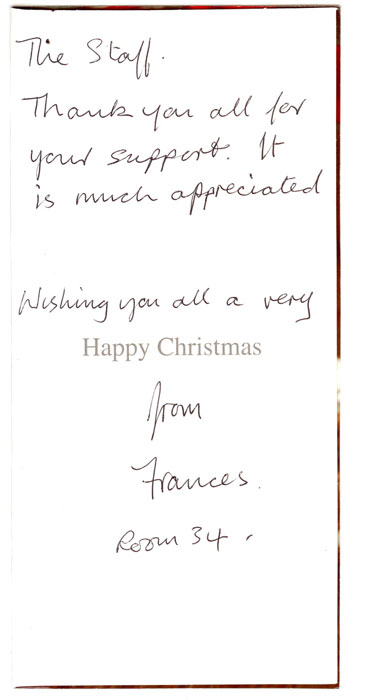 The Staff.
Thank you all for
your support. It
is much appreciated
Wishing you all a very
Happy Christmas
from
Frances.
Room 34.